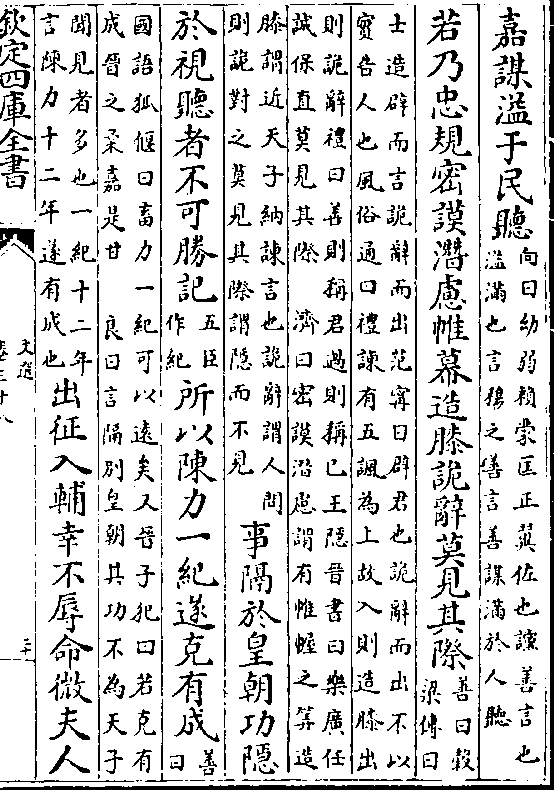 嘉謀溢于民聽
向曰幼弱頼蒙匡正冀佐也讜善言也
溢滿也言揚之善言善謀滿於人聽
若乃忠規密謨潛慮帷幕造膝詭辭莫見其際
善曰穀
梁傳曰
士造辟而言詭辭而出范甯曰辟君也詭辭而出不以
實告人也風俗通曰禮諫有五諷為上故入則造膝出
則詭辭禮曰善則稱君過則稱已王隱晉書曰樂廣任
誠保直莫見其際 濟曰密謨潛慮謂有帷幄之筭造
膝謂近天子納諫言也詭辭謂人問
則詭對之莫見其際謂隱而不見
事隔於皇朝功隱
於視聽者不可勝記
五臣
作紀
所以陳力一紀遂克有成
善
曰
國語狐偃曰畜力一紀可以遠矣又晉子犯曰若克有
成晉之柔嘉是甘 良曰言隔别皇朝其功不為天子
聞見者多也一紀十二年
言陳力十二年遂有成也
出征入輔幸不辱命微夫人
欽定四庫全書
文選
卷三十八